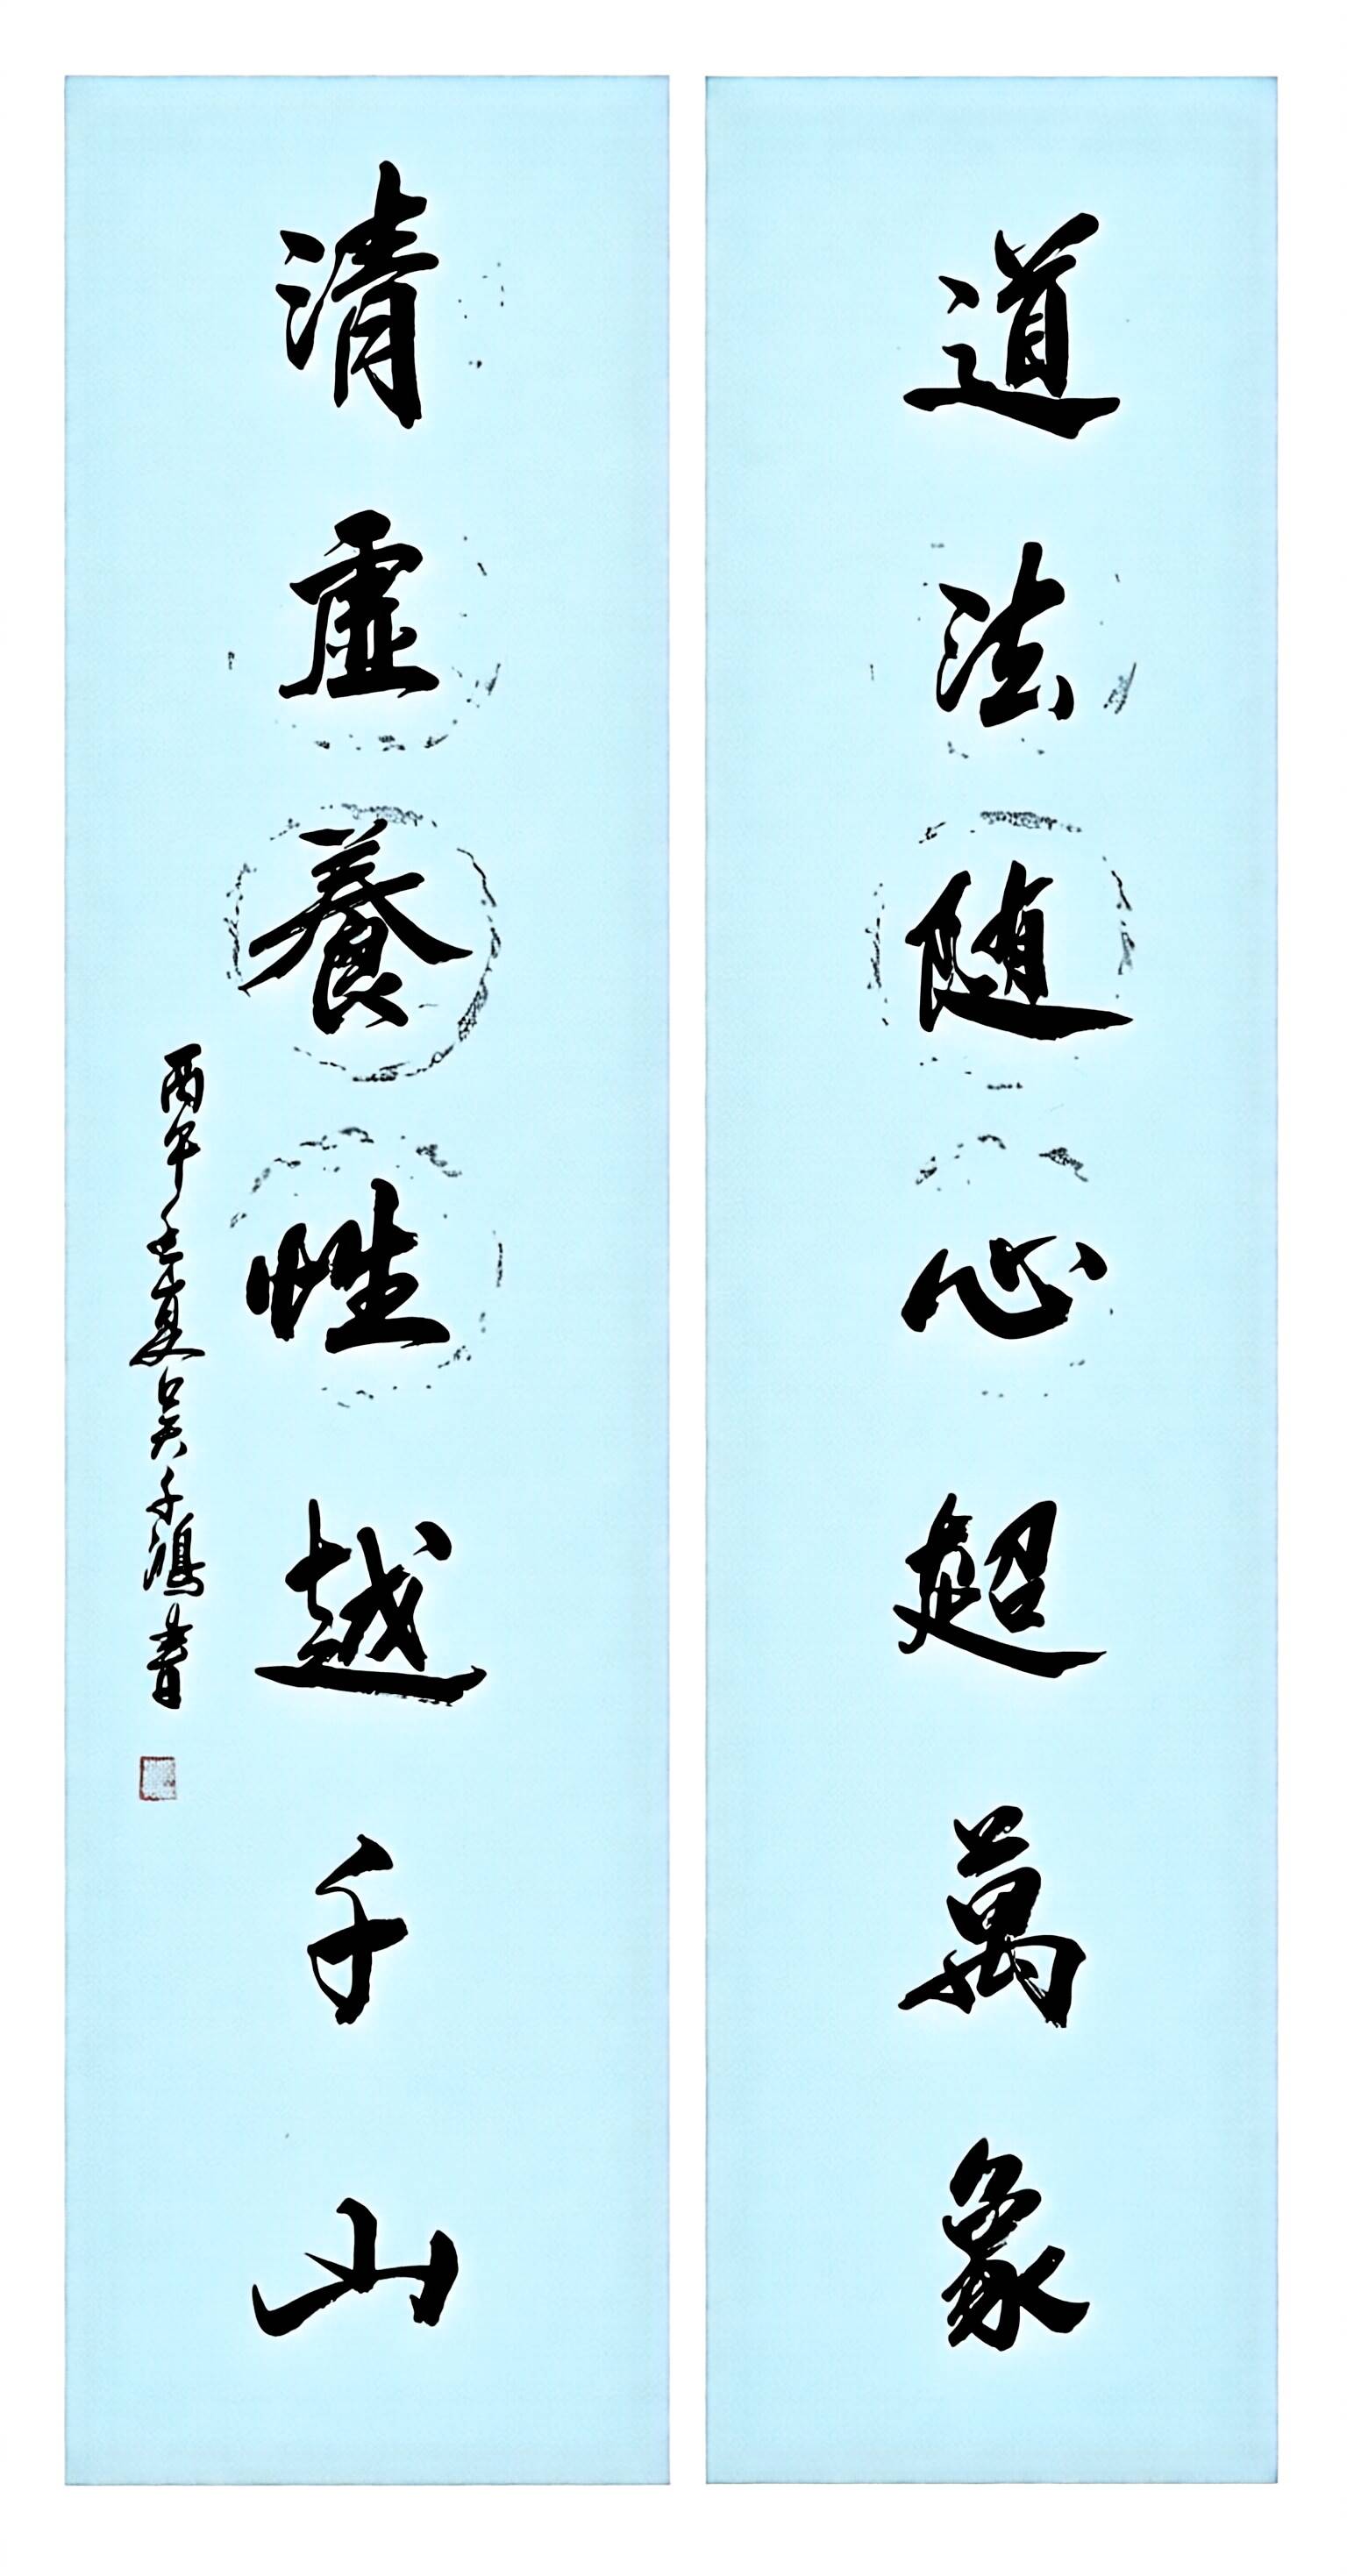 道法随心超萬象
清虛養性越千山
丙午孟夏吴千鴻書